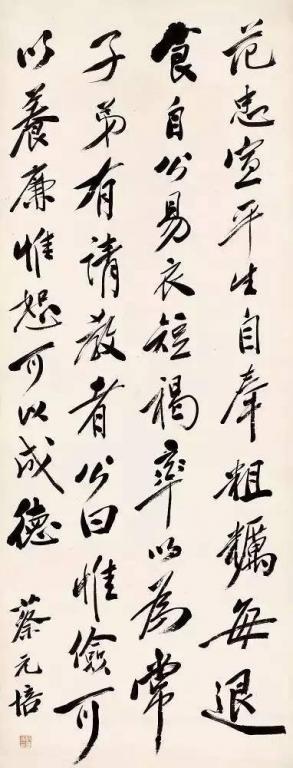 范忠宣平生自奉粗粝每退
食自公易衣短褐率以为常
子弟有请教者公曰惟俭可
以养廉惟恕可以成德
蔡元培